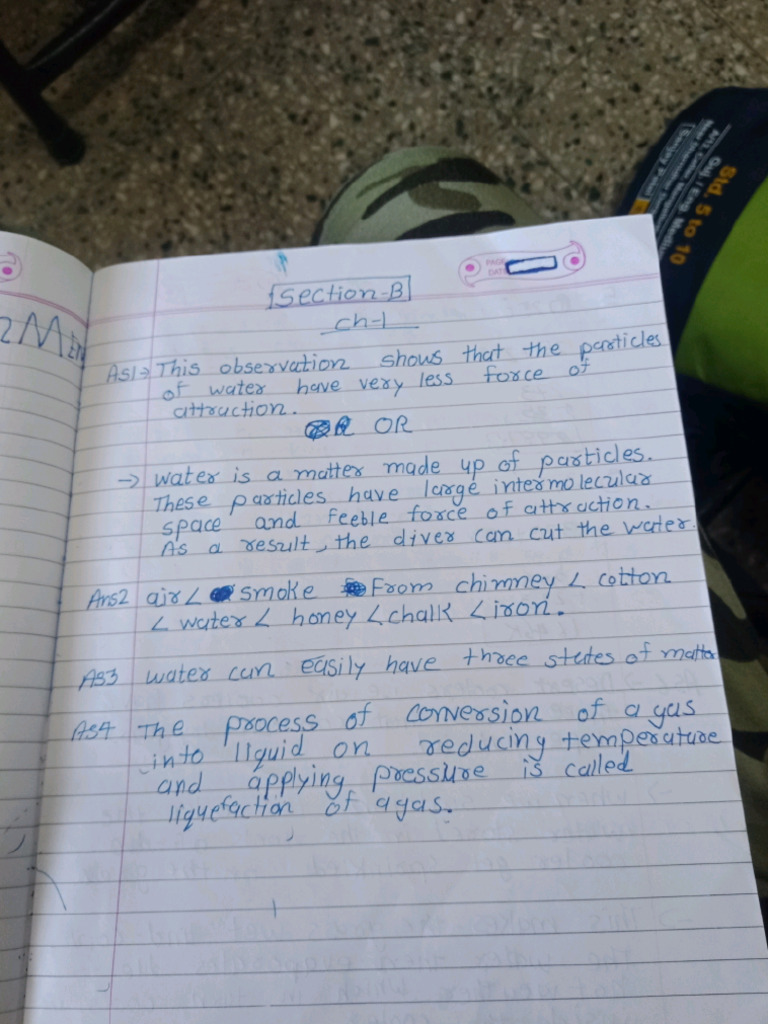 PAGE
DATE
Section-B
ch-1
AS1→ This observation shows that the particles
of water have very less force of
attraction.
OR
→ water is a matter made up of particles.
These particles have large intermolecular
space and feeble force of attraction.
As a result, the diver can cut the water.
Ans2 air < smoke From chimney < cotton
< water < honey < chalk < iron.
AS3 water can easily have three states of matter
AS4 The process of conversion of a gas
into liquid on reducing temperature
and applying pressure is called
liquefaction of a gas.
Std. 5 to 10